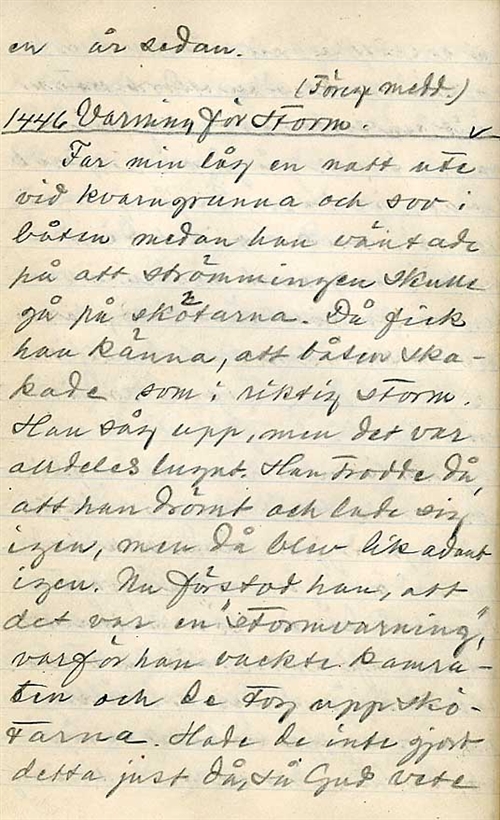 en år sedan.
(Föreg. medd.)
1446 Varning för storm. ✓
Far min låg en natt ute
vid kvarngrunna och sov i
båten medan han väntade
på att strömmingen skulle
gå på skötarna. Då fick
han känna, att båten ska-
kade som i riktig storm.
Han såg upp, men det var
alldeles lugnt. Han trodde då,
att han drömt och lade sig
igen, men då blev likadant
igen. Nu förstod han, att
det var en "stormvarning",
varför han väckte kamra-
ten och de tog upp skö-
tarna. Hade de inte gjort
detta just då, så Gud vete